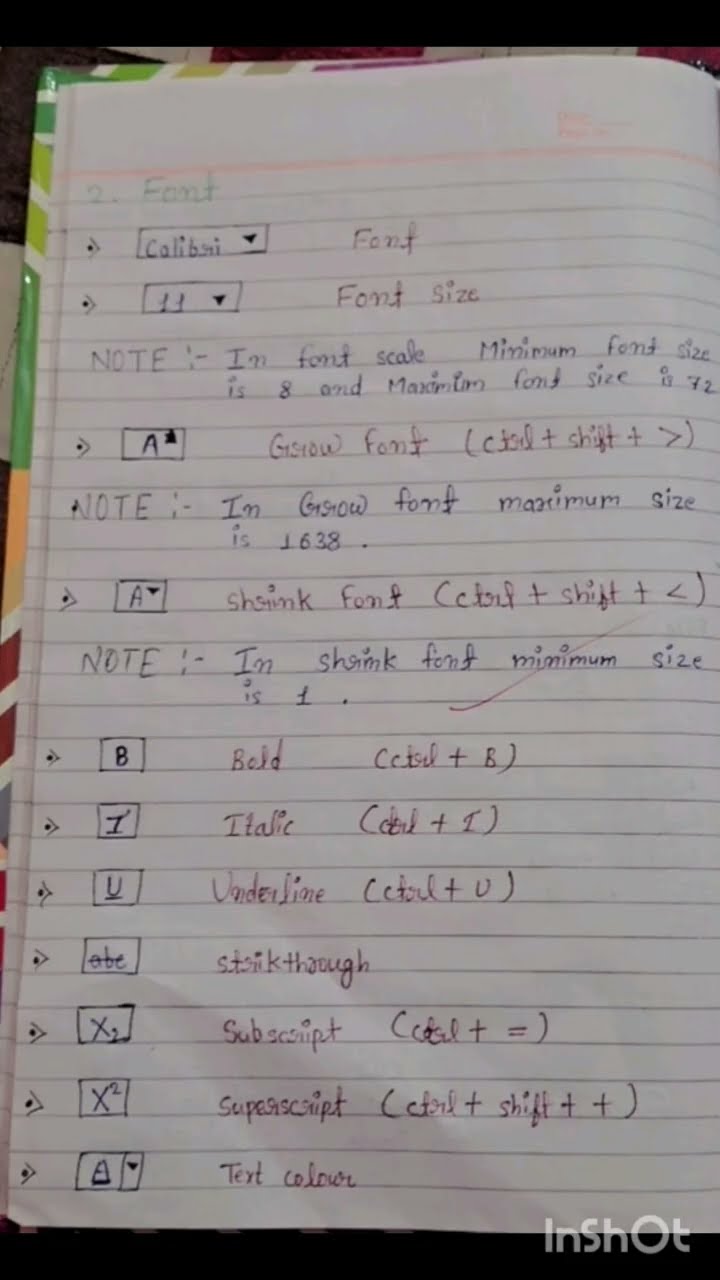 2. Font
Calibri ▼ Font
11 ▼ Font size
NOTE :- In font scale Minimum font size
is 8 and Maximum font size is 72
A▲ Grow Font (ctrl + shift + >)
NOTE :- In Grow font maximum size
is 1638 .
A▼ shrink Font (ctrl + shift + <)
NOTE :- In shrink font minimum size
is 1 .
B Bold (ctrl + B)
I Italic (ctrl + I)
U Underline (ctrl + U)
abc strikthrough
X₂ Subscript (ctrl + =)
X² Superscript (ctrl + shift + +)
A ▼ Text colour
InShOt